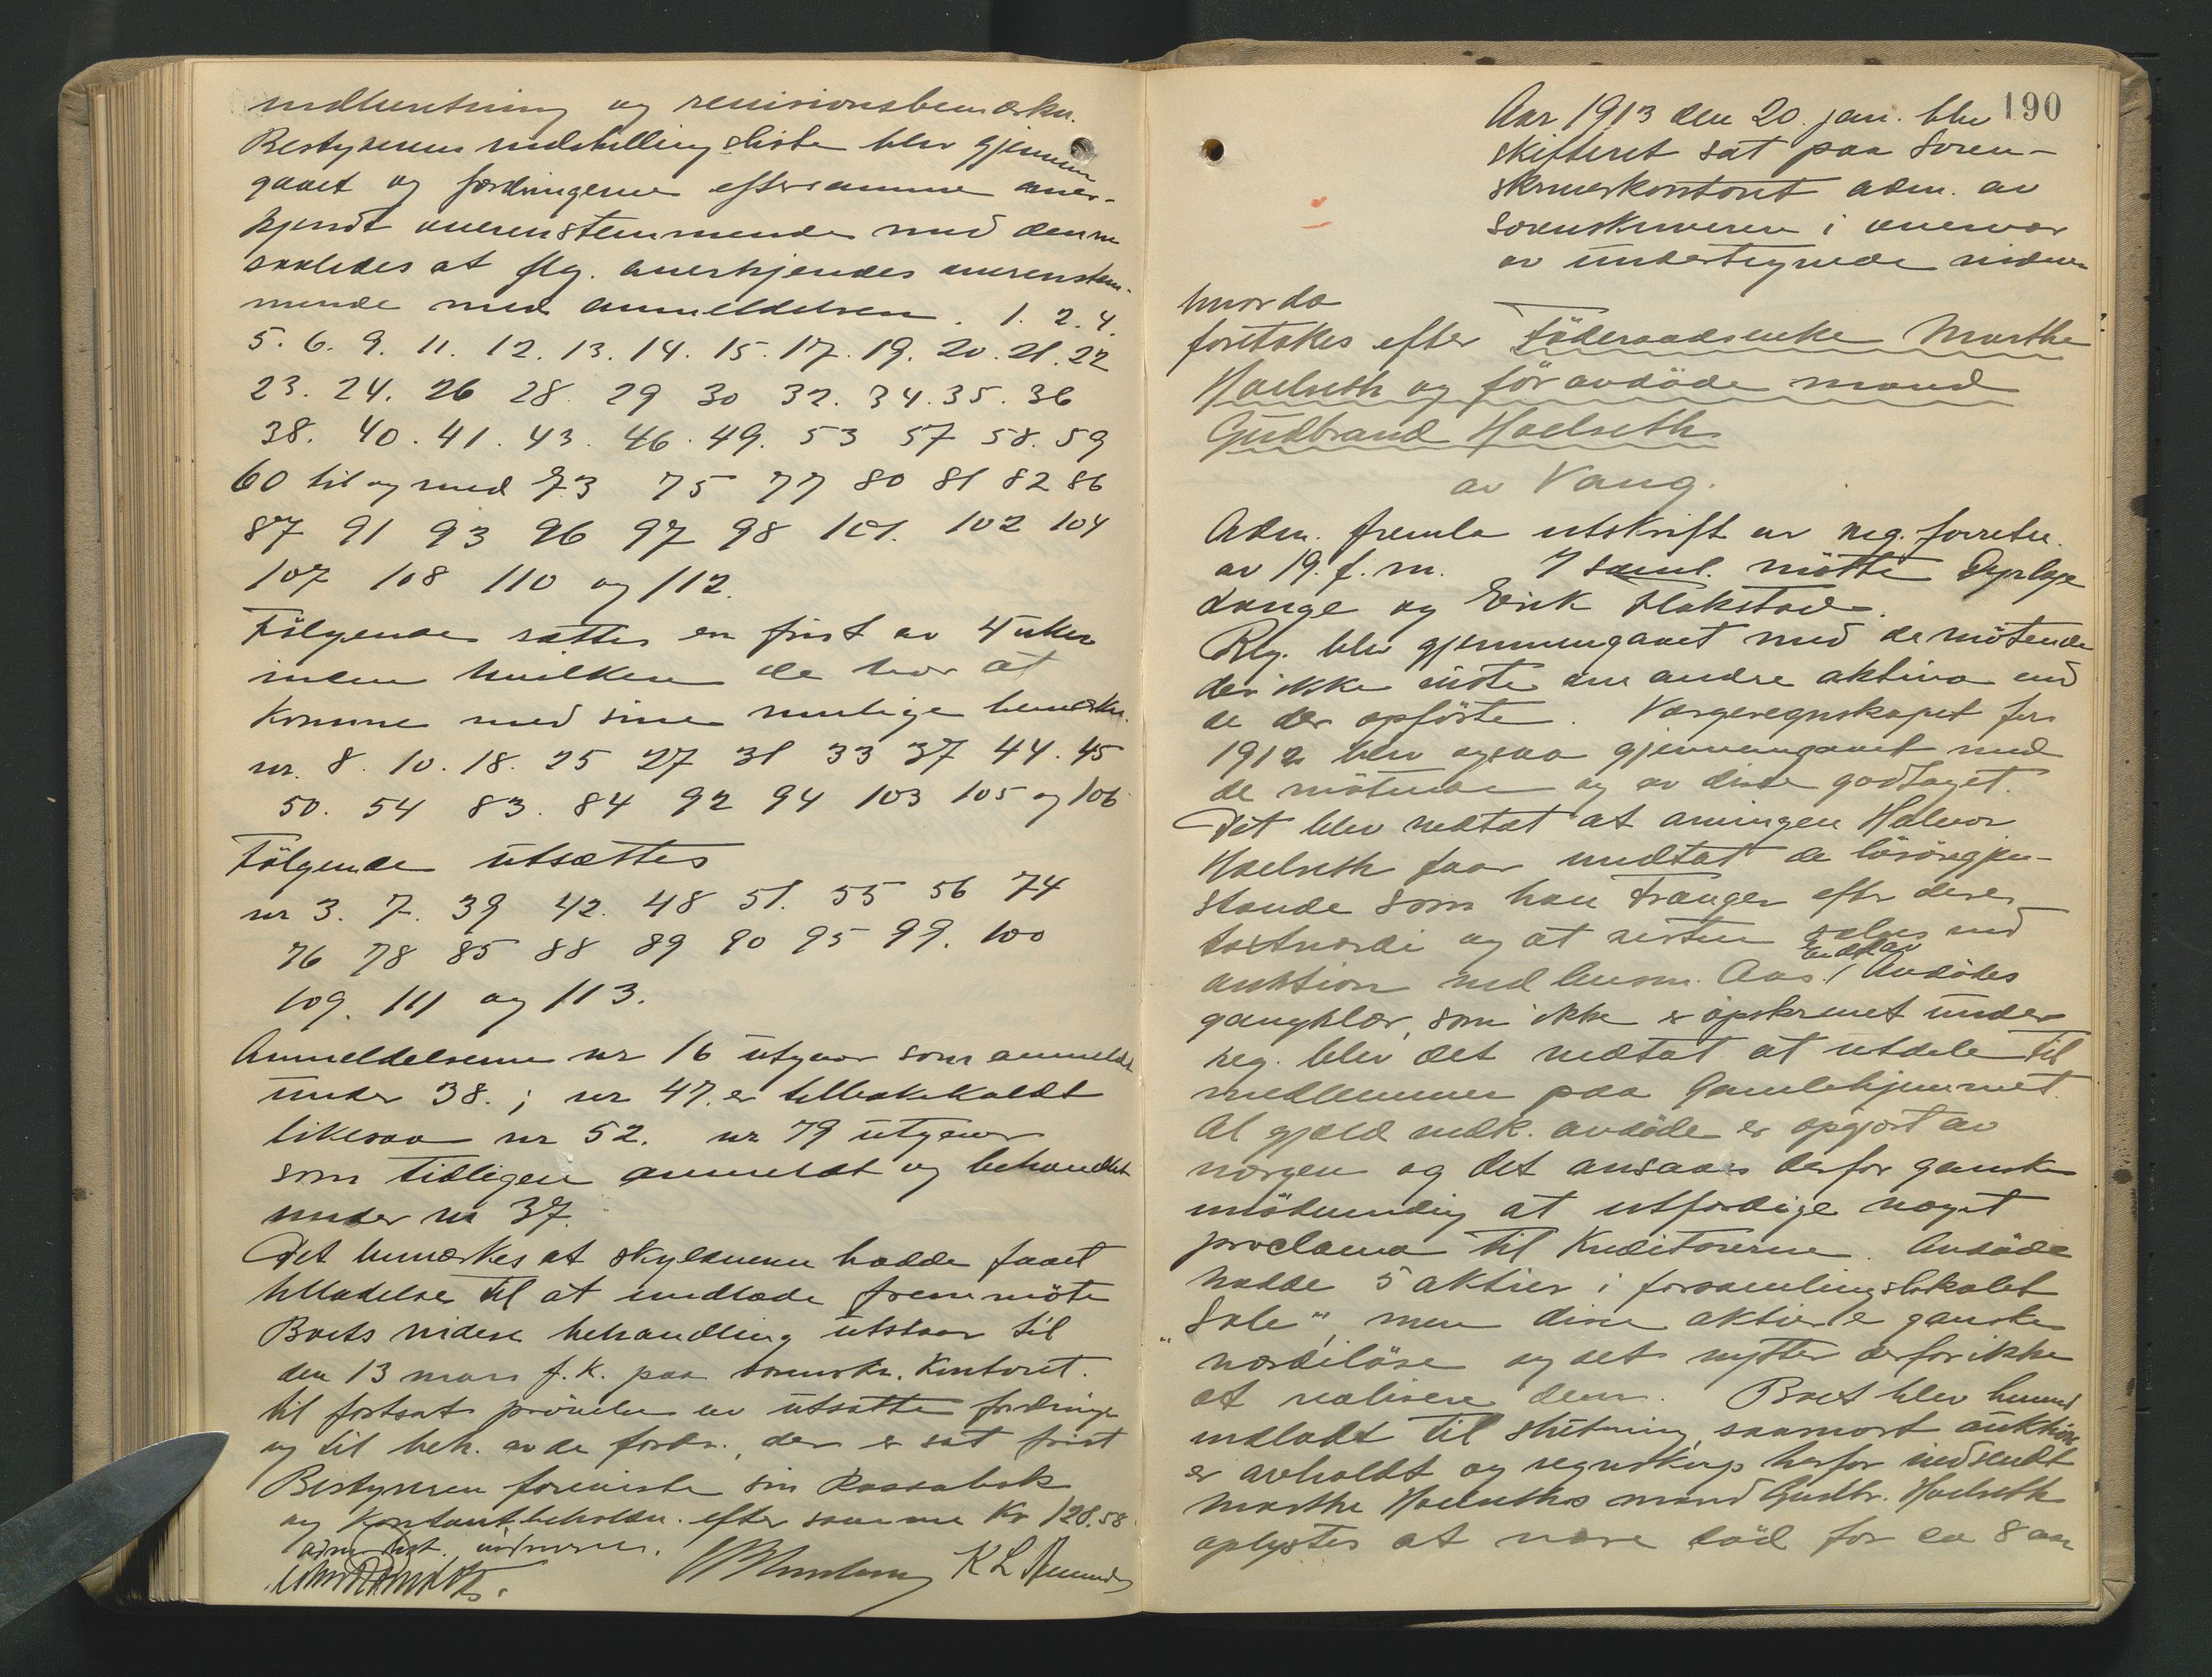 indhentning og revisionsbemærkn.
Bestyrerens indstillingsliste blev gjennem-
gaaet og fordringerne efter samme aner-
kjendt overensstemmende med denne
saaledes at flg. anerkjendes overenstem-
mende med anmeldelsen. 1. 2. 4.
5. 6. 9. 11. 12. 13. 14. 15. 17. 19. 20. 21. 22
23. 24. 26 28. 29 30 32. 34. 35. 36
38. 40. 41. 43. 46. 49. 53 57 58. 59
60 til og med 73 75 77 80 81 82 86
87 91 93 96 97 98 101. 102 104
107 108 110 og 112.
Følgende sættes en frist av 4 uker
inden hvilken de har at
komme med sine mulige bemærkn.
nr. 8. 10. 18. 25 27 31 33 37 44. 45
50. 54 83. 84 92 94 103 105 og 106
Følgende utsættes
nr 3. 7. 39 42. 48 51. 55 56 74
76 78 85 88 89 90 95 99. 100
109. 111 og 113.
Anmeldelserne nr 16 utgaar som anmeldt
under 38. ; nr 47. er tilbakekaldt
likesaa nr 52. nr 79 utgaar
som tidligere anmeldt og behandlet
under nr 37.
Det bemærkes at skyldneren hadde faaet
tilladelse til at undlade fremmöte
Boets videre behandling utstaar til
den 13 mars f.k. paa sorenskr. kontoret.
til fortsat prövelse av utsatte fordringer
og til beh. av de fordr., der er sat frist
Bestyreren foreviste sin kassabok
og kontantbeholdn. efter samme kr 128.58.
K L
190
Aar 1913 den 20. jan. blev
skifteret sat paa soren-
skriverkontoret adm. av
sorenskriveren i overvær
av undertegnede vidner
hvorda
foretokes efter Föderaadsenke Marthe
Hoelseth og för avdöde mand
Gudbrand Hoelseth
av Vang.
Adm. fremla utskrift av reg. forretn.
av 19. f. m. I saml. mötte Dyrlæge
Lange og Erik Flakstad.
Reg. blev gjennemgaaet med de mötende
der ikke viste om andre aktiva end
de der opförte. Værgeregnskapet for
1912 blev ogsaa gjennemgaaet med
de mötende og av disse godtaget.
Det blev vedtat at arvingen Halvor
Hoelseth faar undtat de lösöregjen-
stande som han trænger efter deres
takstværdi og at resten sælges ved
auktion ved lensm. Aas. / Endel av Avdödes
gangklær, som ikke er opskrevet under
reg. blev det vedtat at utdele til
medlemmer paa Gamlehjemmet.
Al gjæld vedk. avdöde er opgjort av
værgen og det ansaaes derfor ganske
unödvendig at utfærdige noget
proclama til kreditorerne. Avdöde
hadde 5 aktier i forsamlingslokalet
"Sole", men disse aktier er ganske
værdilöse og det nytter derfor ikke
at realisere dem. Boet blev herved
indladt til slutning saasnart auktion
er avholdt og regnskap herfor indsendt
Marthe Hoelseths mand Gudbr. Hoelseth
oplystes at være död for ca 8 aar